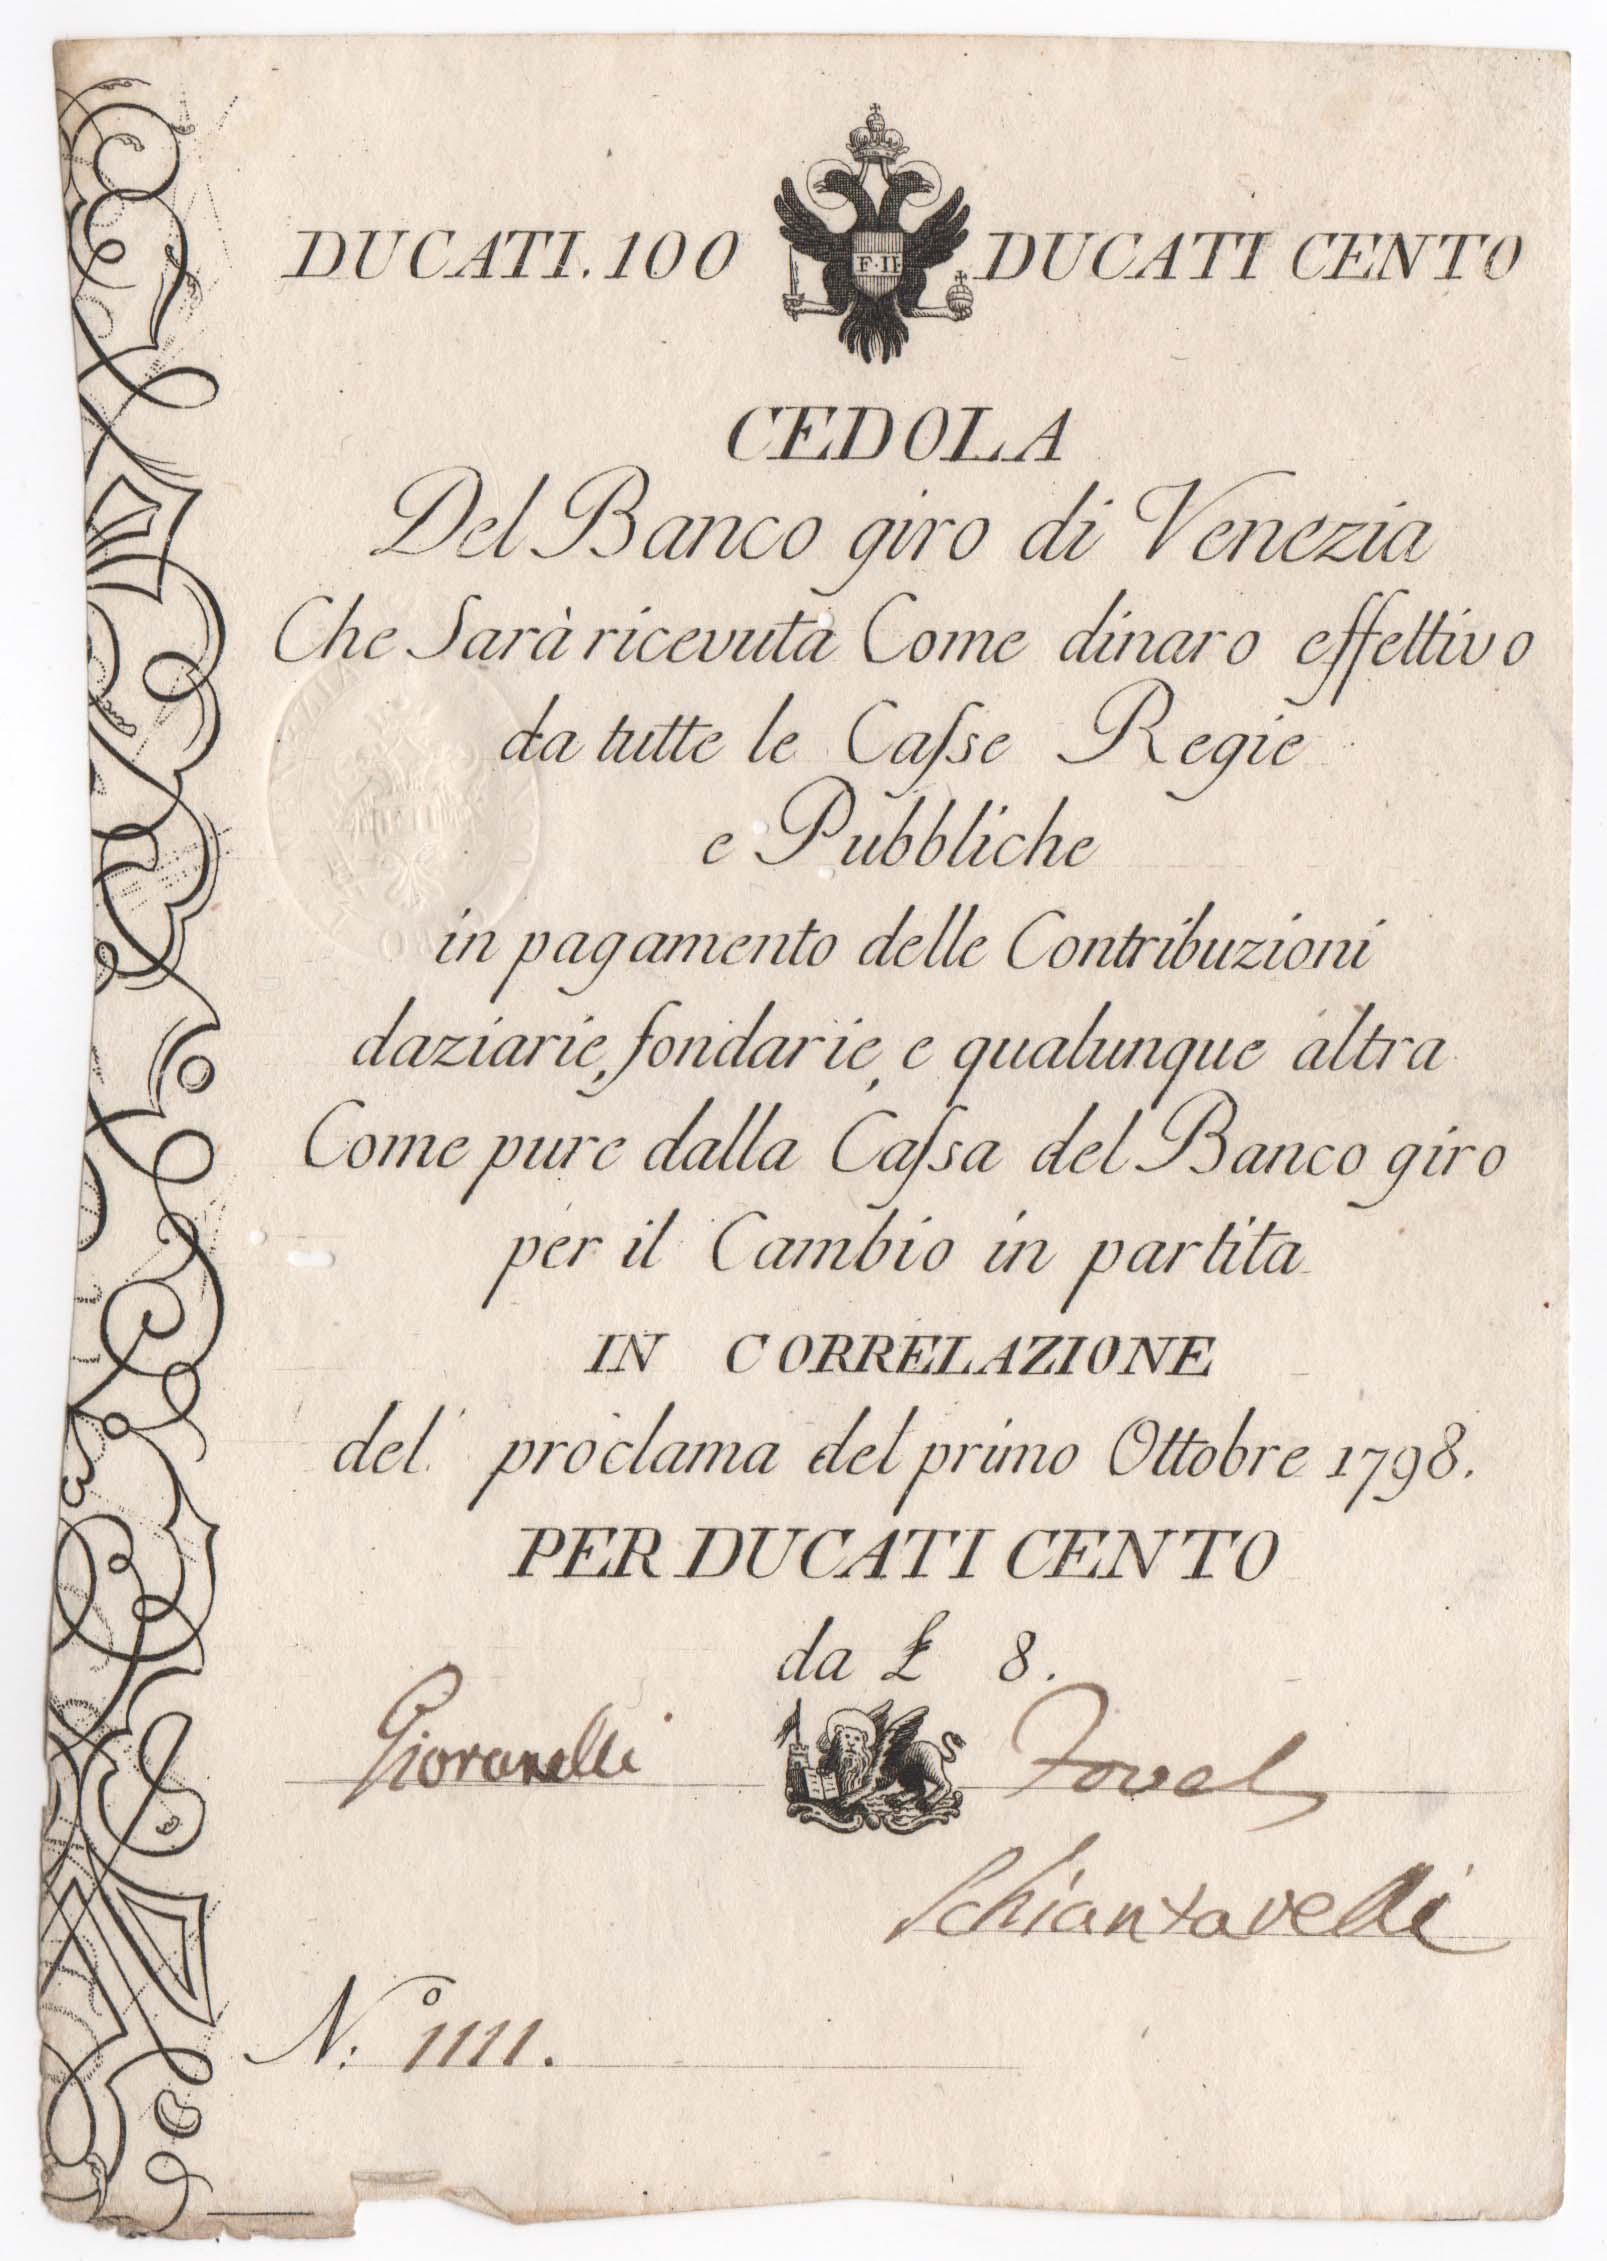 DUCATI. 100 F·II· DUCATI CENTO
CEDOLA
Del Banco giro di Venezia
Che Sarà ricevuta Come dinaro effettivo
da tutte le Caſse Regie
e Pubbliche
in pagamento delle Contribuzioni
daziarie, fondarie, e qualunque altra
Come pure dalla Caſsa del Banco giro
per il Cambio in partita
IN CORRELAZIONE
del proclama del primo Ottobre 1798.
PER DUCATI CENTO
da £ 8.
Giovanelli
Schiantarelli
N:º 1111.